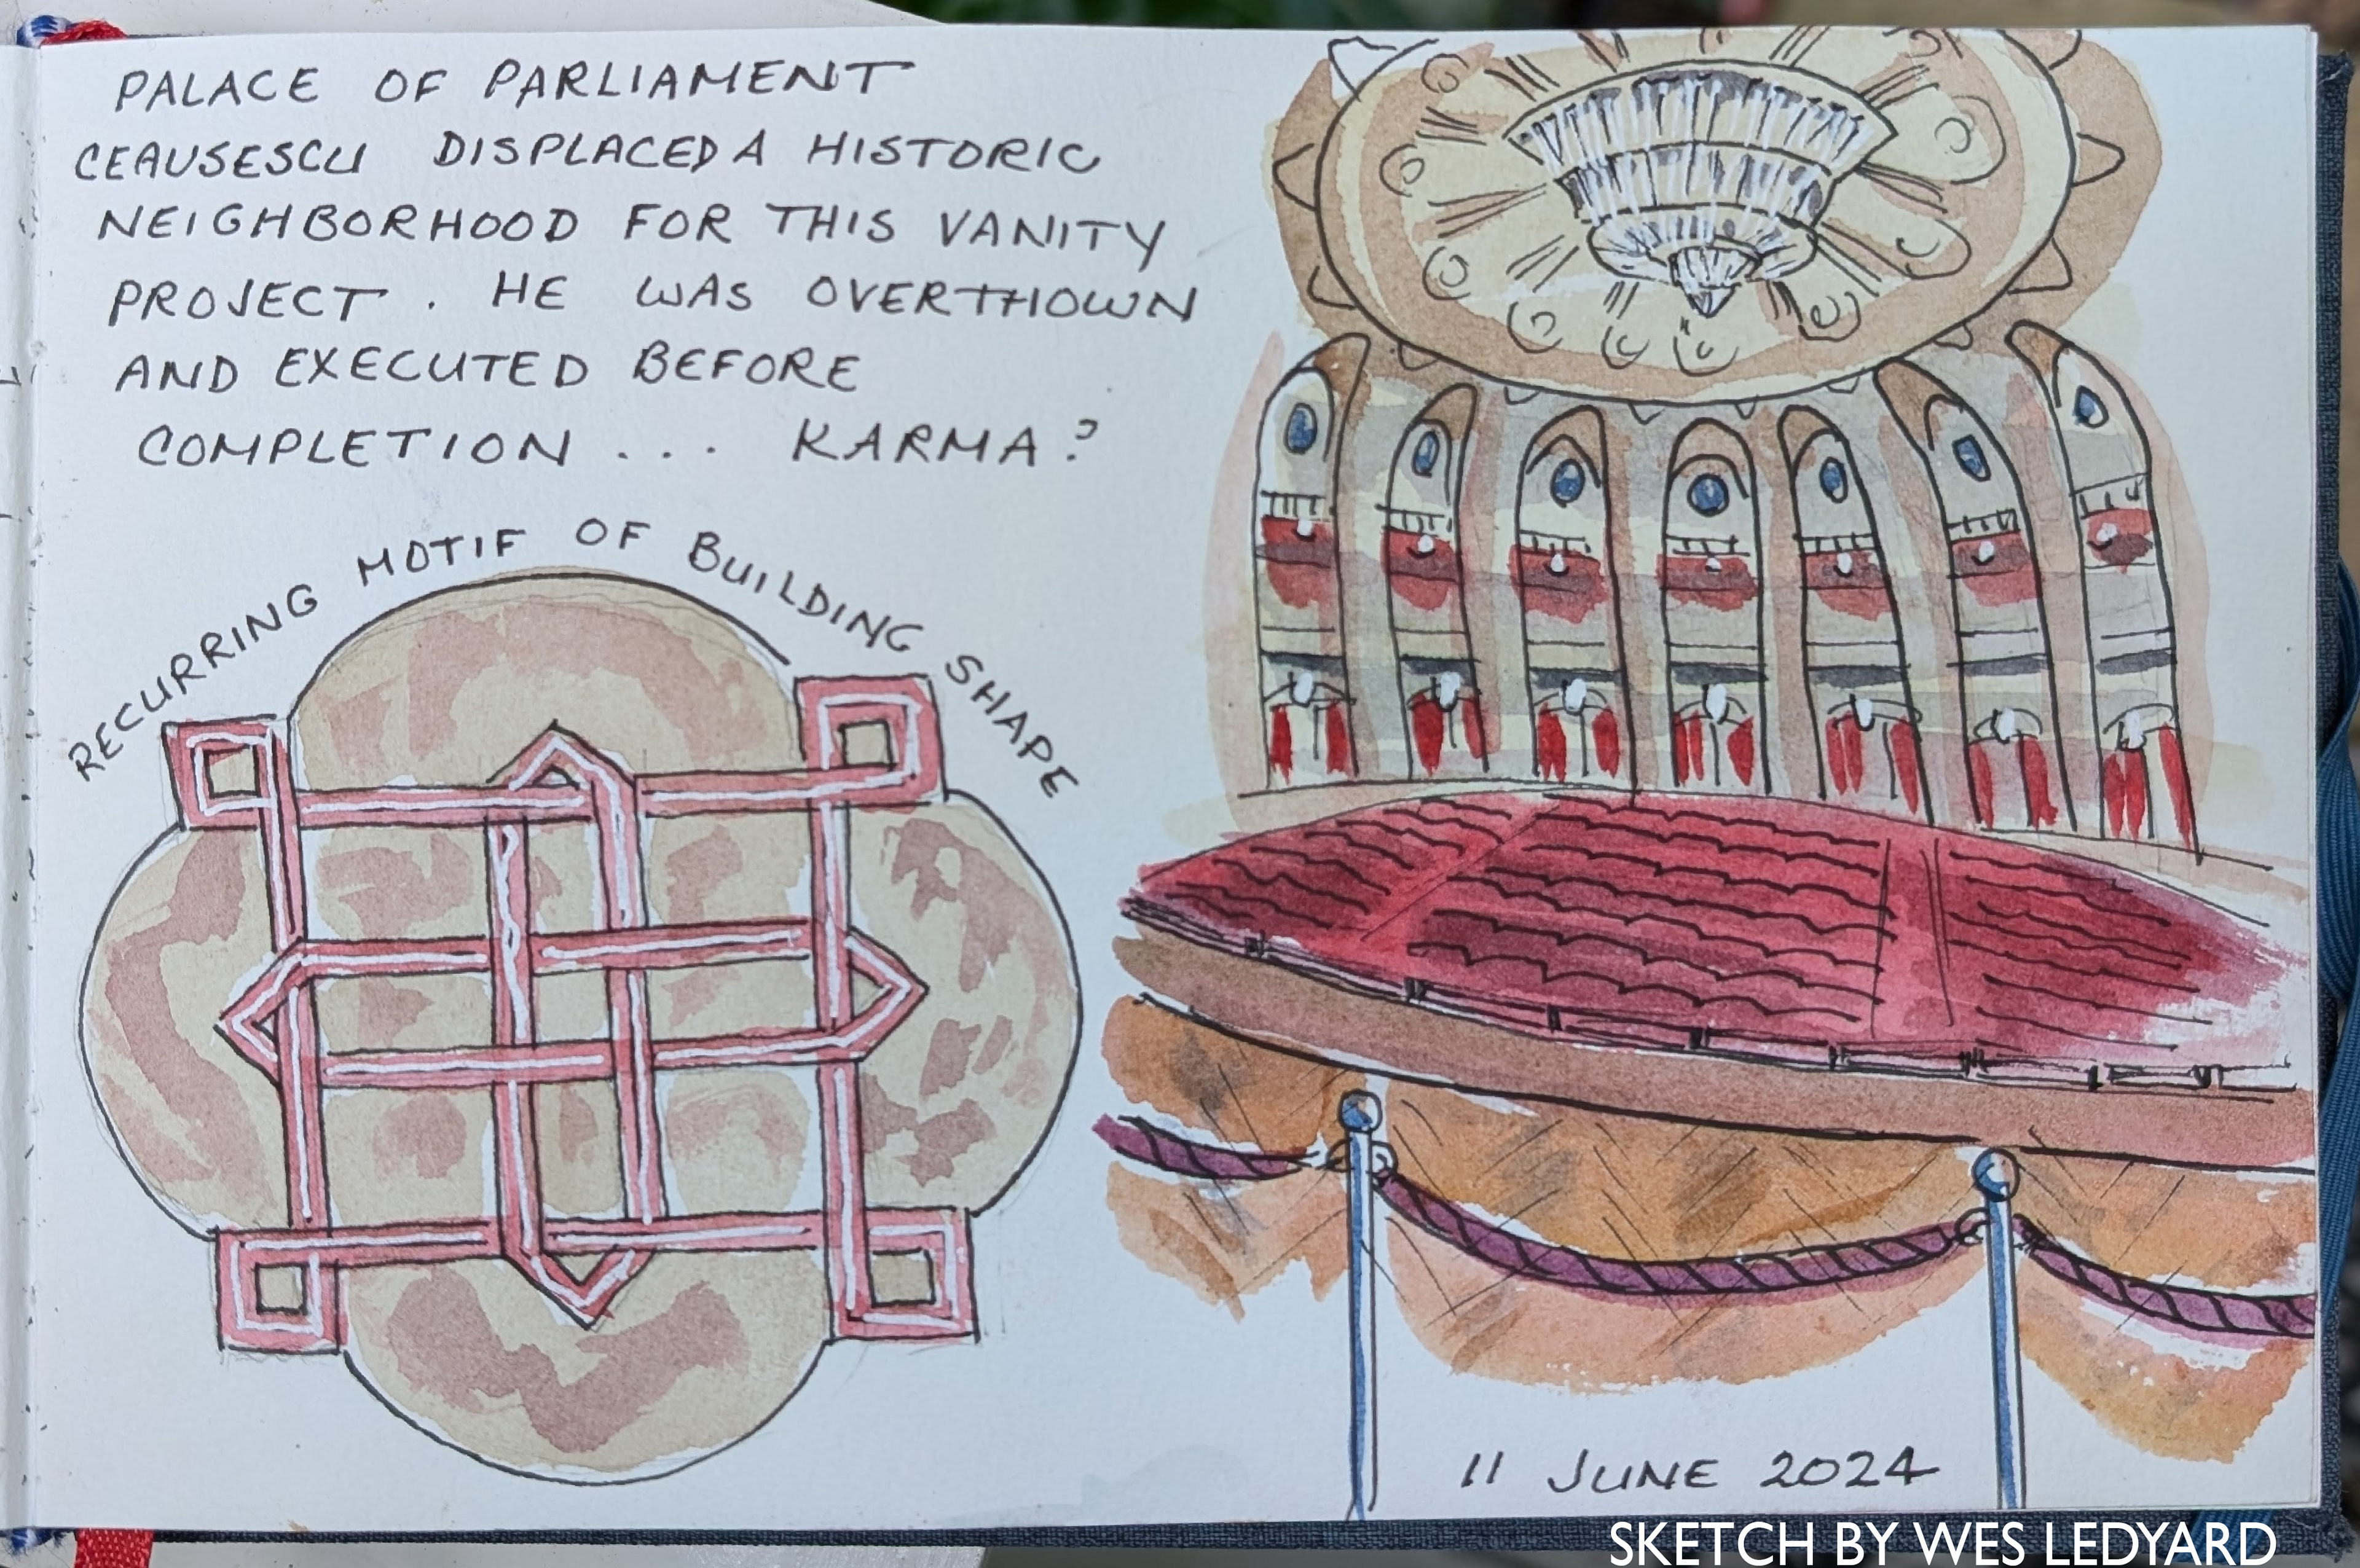 PALACE OF PARLIAMENT
CEAUSESCU DISPLACED A HISTORIC
NEIGHBORHOOD FOR THIS VANITY
PROJECT. HE WAS OVERTHOWN
AND EXECUTED BEFORE
COMPLETION... KARMA?
RECURRING MOTIF OF BUILDING SHAPE
11 JUNE 2024
SKETCH BY WES LEDYARD